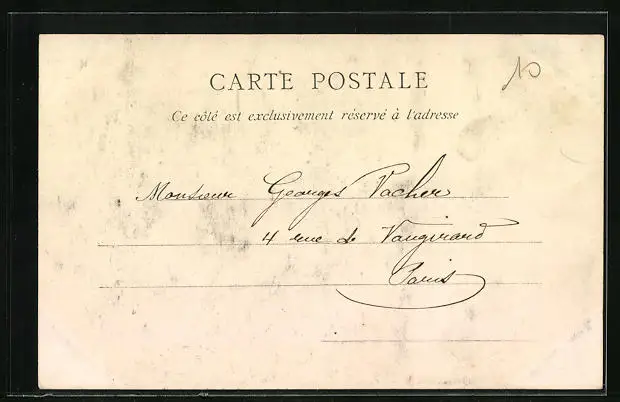 CARTE POSTALE
10
Ce côté est exclusivement réservé à l'adresse
Monsieur Georges Vacher
4 rue de Vaugirard
Paris